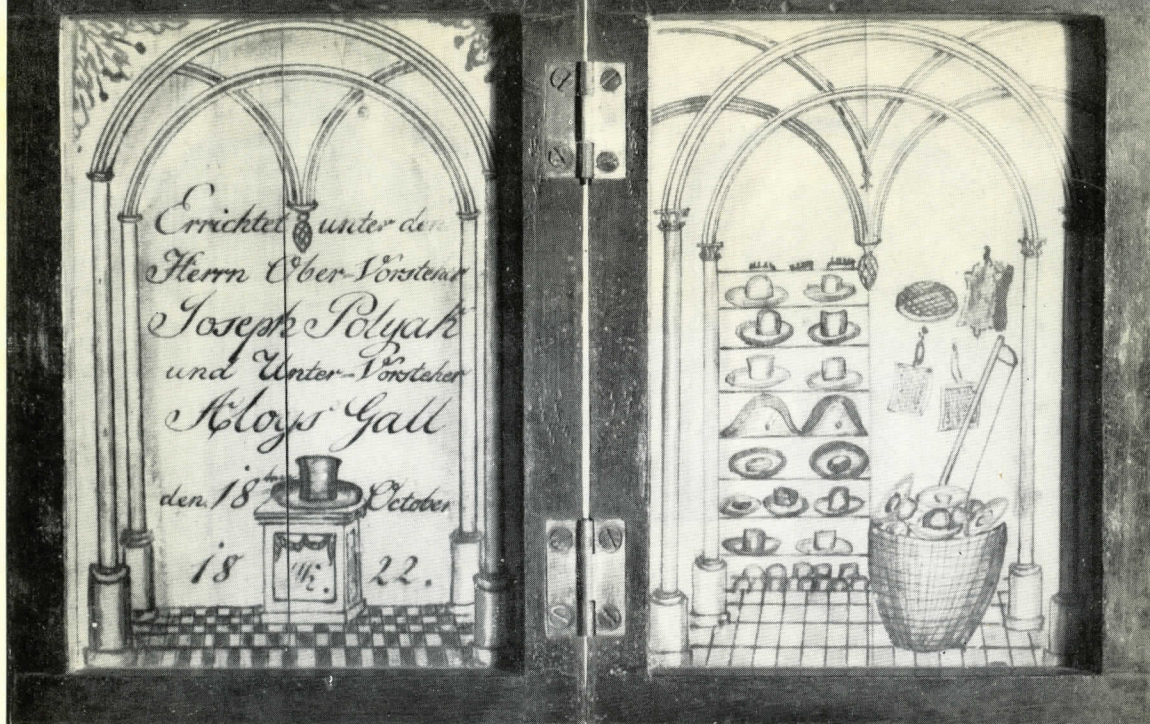 Errichtet unter den
Herrn Ober-Vorsteher
Joseph Polyak
und Unter-Vorsteher
Aloys Gall
den 18ten October
18 22.